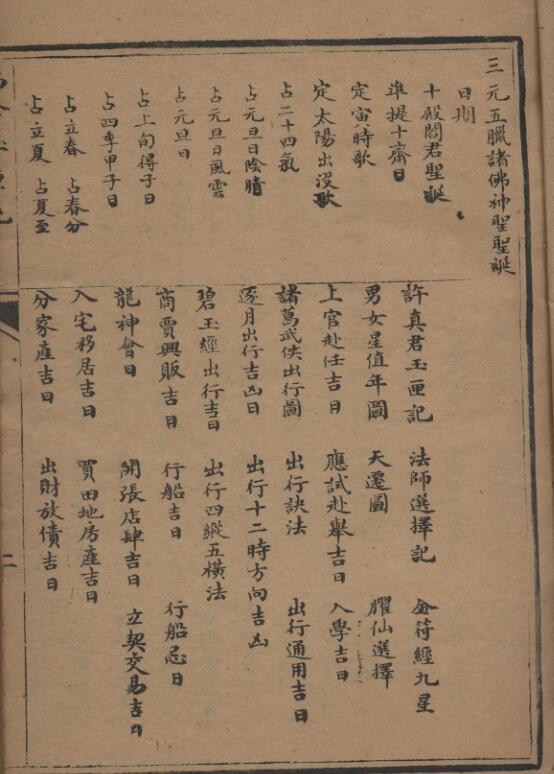 三元五臘諸佛神聖聖誕
日期
十殿閻君聖誕
準提十齋日
定寅時歌
定太陽出沒歌
占二十四氣
占元旦日陰晴
占元旦日風雲
占元旦日
占上旬得子日
占四季甲子日
占立春 占春分
占立夏 占夏至
許真君玉匣記 法師選擇記 金符經九星
男女星值年圖 天遷圖 臞仙選擇
上官赴任吉日 應試赴舉吉日 入學吉日
諸葛武侯出行圖 出行訣法 出行通用吉日
逐月出行吉凶日 出行十二時方向吉凶
碧玉經出行吉日 出行四縱五橫法
商賈興販吉日 行船吉日 行船忌日
龍神會日 開張店肆吉日 立契交易吉日
入宅移居吉日 買田地房產吉日
分家產吉日 出財放債吉日
二